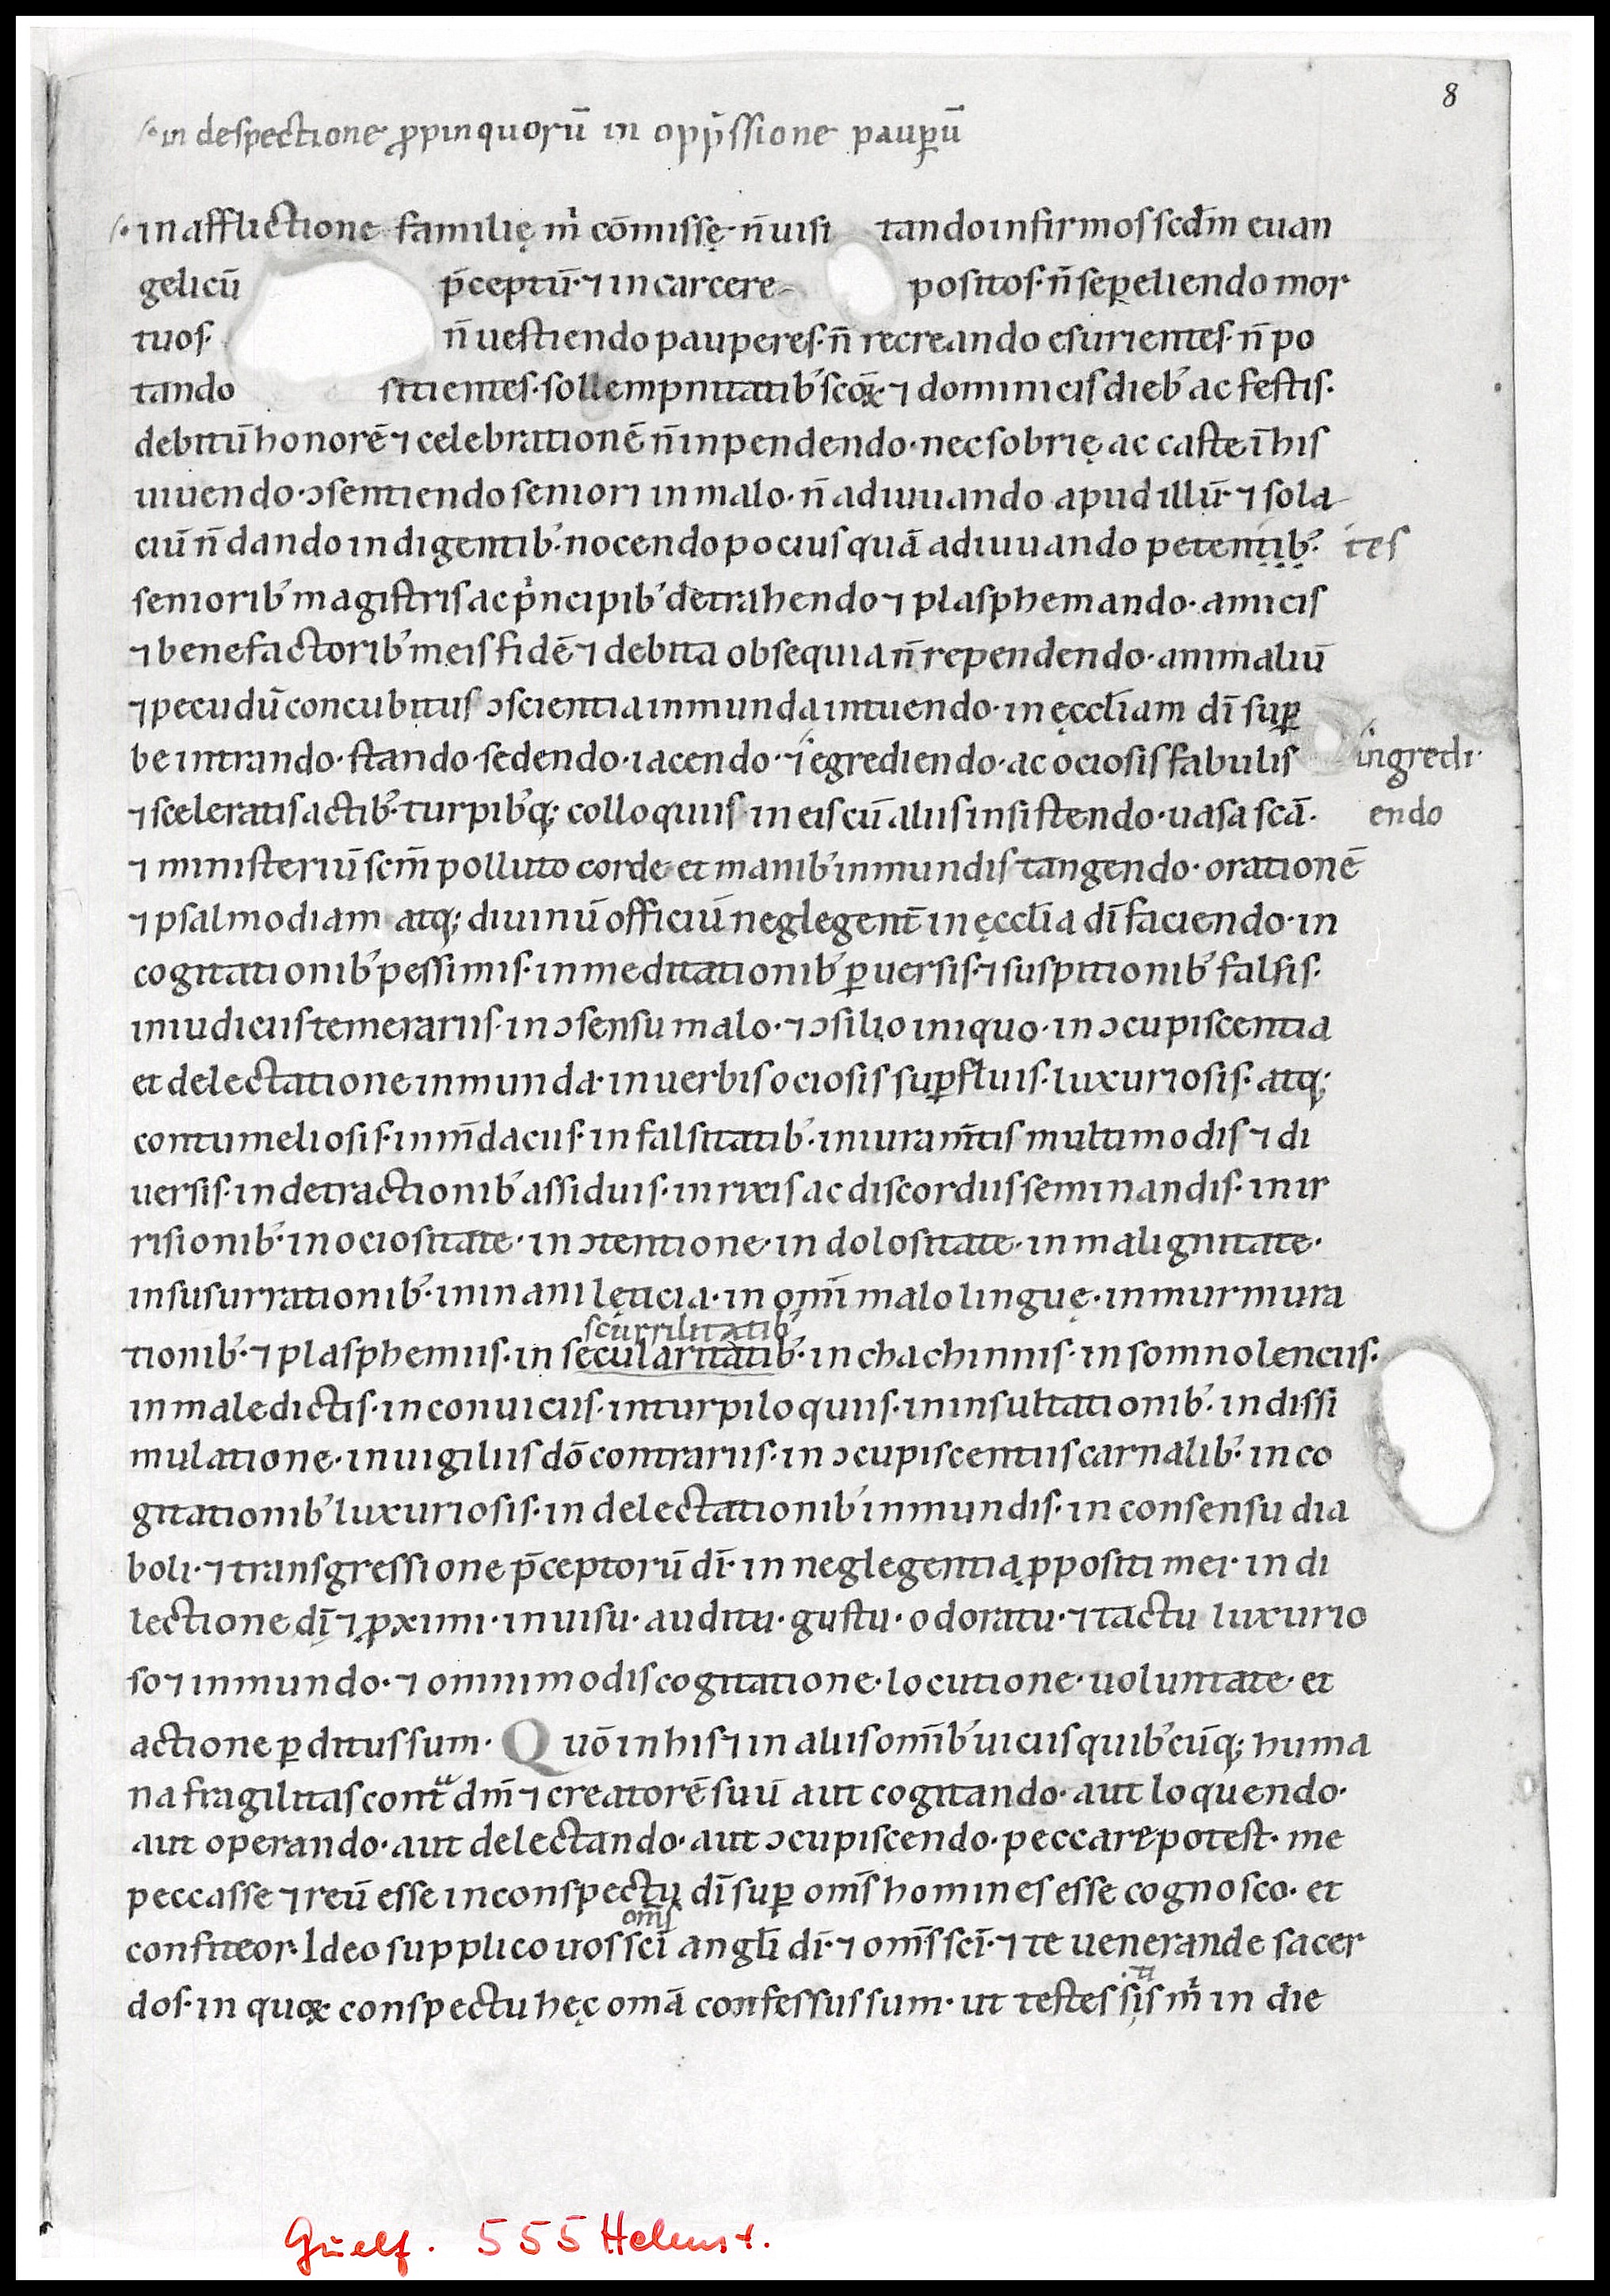 8
/· in despectione ꝓpinquorū in opp̄ssione pauꝑū
/· in afflictione familię m̉ cōmissę· n̄ uisi tando infirmos scdm̄ euan
gelicū p̄ceptū· ⁊ in carcere positos· n̄ sepeliendo mor
tuos· n̄ uestiendo pauperes· n̄ recreando esurientes· n̄ po
tando sitientes· sollempnitatib' scōꝝ ⁊ dominicis dieb' ac festis·
debitū honorē ⁊ celebrationē n̄ inpendendo· nec sobrię ac caste ī his
uiuendo· ɔsentiendo seniori in malo· n̄ adiuuando apud illū· ⁊ sola
ciū n̄ dando indigentib'· nocendo pocius quā adiuuando petentib'· tes
seniorib' magistris ac p̉ncipib' detrahendo ⁊ plasphemando· amicis
⁊ benefactorib' meis fidē ⁊ debita obsequia n̄ rependendo· animaliū
⁊ pecudū concubitus ɔscientia inmunda intuendo· in ęccl̄iam dī suꝑ
be intrando· stando· sedendo· iacendo· ⁊ egrediendo· ac ociosis fabulis ingredi·
⁊ sceleratis actib'· turpib'q; colloquiis in eis cū aliis insistendo· uasa scā· endo
⁊ ministeriū scm̄ polluto corde et manib' inmundis tangendo· orationē
⁊ psalmodiam atq; diuinū officiū neglegent̄ in ęccl̄ia dī faciendo· in
cogitationib' pessimis· in meditationib' ꝑuersis· ⁊ suspitionib' falsis·
in iudiciis temerariis· in ɔsensu malo· ⁊ ɔsilio iniquo· in ɔcupiscentia
et delectatione inmunda· in uerbis ociosis suꝑfluis· luxuriosis· atq;
contumeliosis· in m̄daciis· in falsitatib'· in iuram̄tis multimodis ⁊ di
uersis· in detractionib' assiduis· in rixis ac discordiis seminandis· in ir
risionib'· in ociositate· in ɔtentione· in dolositate· in malignitate·
in susurrationib'· in inani lęticia· in om̄i malo linguę· in murmura
scurrilitatib'
tionib'· ⁊ plasphemiis· in secularitatib'· in chachinnis· in somnolenciis·
in maledictis· in conuiciis· in turpiloquiis· in insultationib'· in dissi
mulatione· in uigiliis dō contrariis· in ɔcupiscentiis carnalib'· in co
gitationib' luxuriosis· in delectationib' inmundis· in consensu dia
boli· ⁊ transgressione p̄ceptorū dī· in neglegentia ꝓpositi mei· in di
lectione dī ⁊ ꝓximi· in uisu· auditu· gustu· odoratu· ⁊ tactu luxurio
so ⁊ inmundo· ⁊ omnimodis cogitatione· locutione· uoluntate· et
actione ꝑditus sum· Quō in his ⁊ in aliis om̄ib' uiciis quib'cūq; huma
na fragilitas contᵃ dm̄ ⁊ creatorē suū aut cogitando· aut loquendo·
aut operando· aut delectando· aut ɔcupiscendo· peccare potest· me
peccasse ⁊ reū esse in conspectu dī suꝑ om̄s homines esse cognosco· et
om̄s
confiteor· Ideo supplico uos scī angl̄i dī· ⁊ om̄s scī· ⁊ te uenerande sacer
ti
dos· in quoꝝ conspectu hęc omā confessus sum· ut testes sis m̉ in die
Guelf. 555 Helmst.